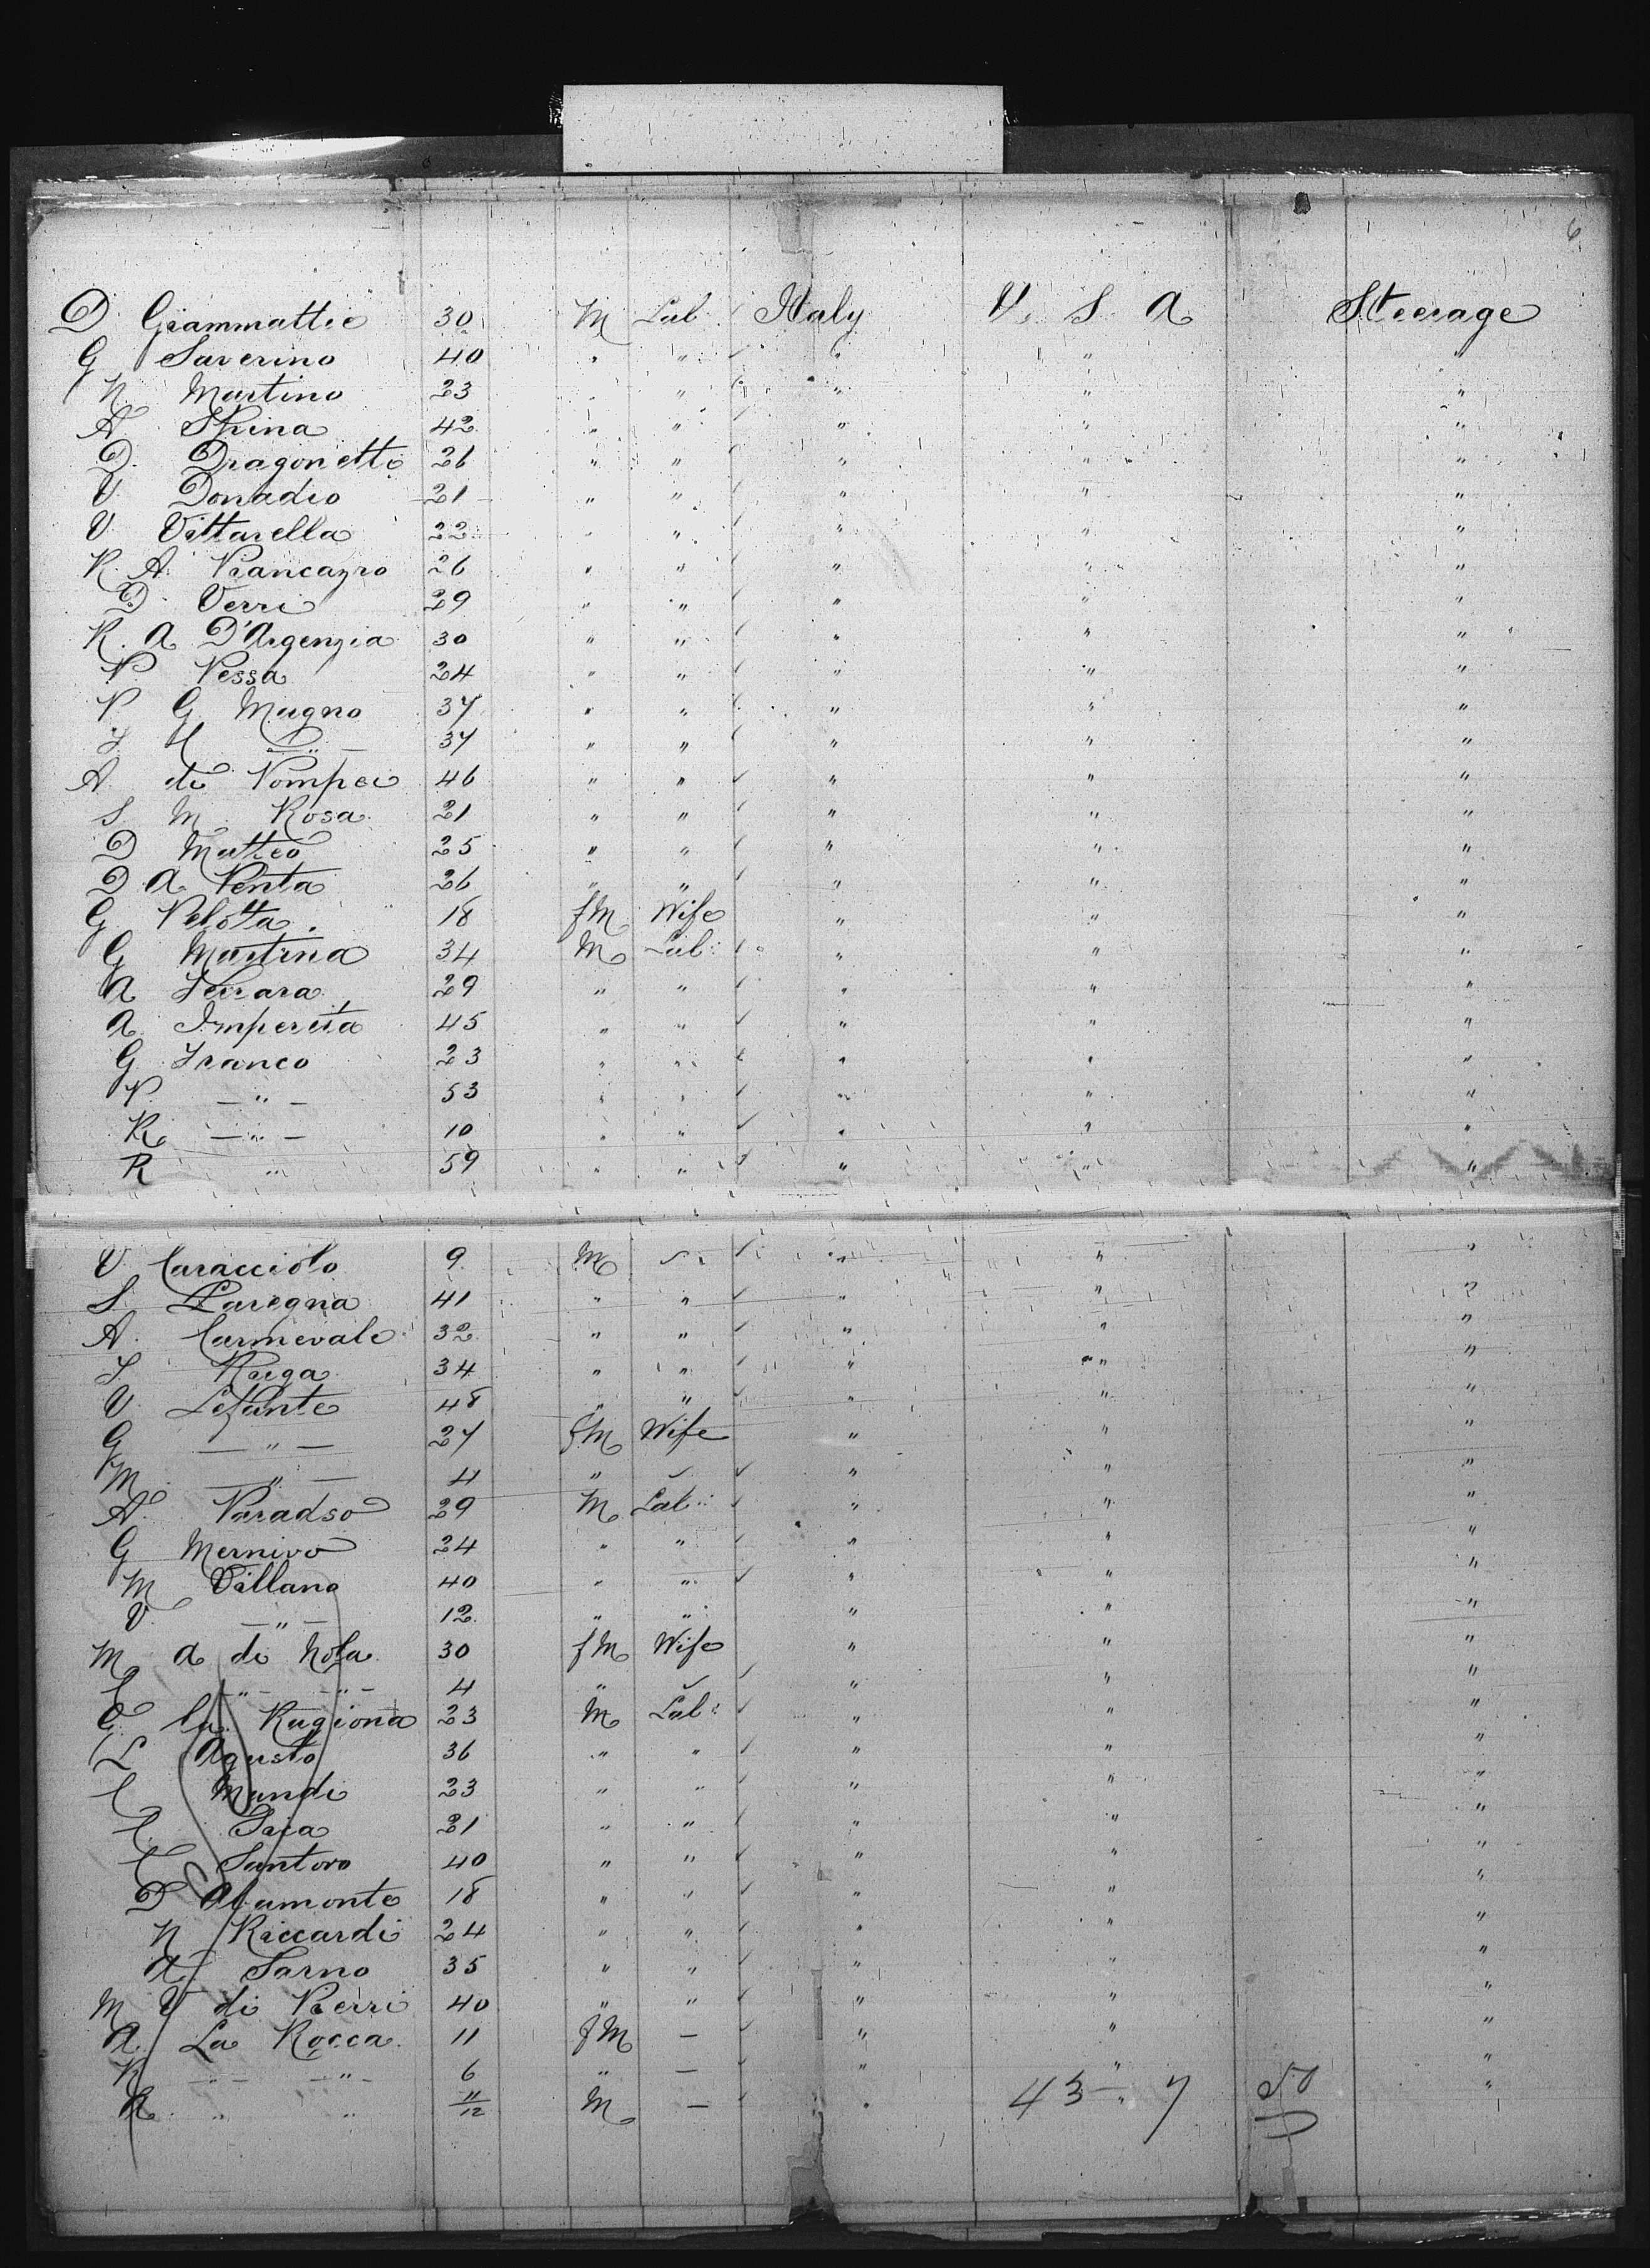 6
D Giammattie 30 M Lab Italy U. S. A Steerage
G Saverino 40 " " " " "
N. Martino 23 " " " " "
A Spina 42 " " " " "
D. Dragonetti 26 " " " " "
V Donadio 21 " " " " "
V. Vittarella 22 " " " " "
R. A. Piancazro 26 " " " " "
D. Verri 29 " " " " "
R. A D'Argenzia 30 " " " " "
P Pessa 24 " " " " "
P G Magno 37 " " " " "
F H — " — 37 " " " " "
A di Pompei 46 " " " " "
S M Rosa 21 " " " " "
D Matteo 25 " " " " "
D A Penta 26 " " " " "
G Pelotta. 18 fM Wife " " "
G Martina 34 M Lab " " "
A Ferrara 29 " " " " "
A 45 " " " " "
G Franco 23 " " " " "
P — " — 53 " " " " "
R — " — 10 " " " " "
R " 59 " " " " "
V Caracciolo 9 M " " " "
S Laregna 41 " " " " "
A. Carnevale 32 " " " " "
F Raga 34 " " " " "
V Lefante 48 " " " " "
G — " — 27 fM Wife " " "
M — " — 4 " " " "
A Paradso 29 M Lab " " "
G Mernivo 24 " " " " "
M Villano 40 " " " " "
V — " — 12 " " " " "
M A di Nola 30 fM Wife " " "
— " — — " — 4 " " " "
G la Ragiona 23 M Lab " " "
L Agusto 36 " " " " "
C Mandi 23 " " " " "
C. Saia 21 " " " " "
C Santoro 40 " " " " "
D Alamonte 18 " " " " "
N Riccardi 24 " " " " "
A Sarno 35 " " " " "
M V di Pierri 40 " " " " "
A. La Rocca 11 fM — " " "
R — " — — " — 6 " — " " "
A " " 11/12 M — " " "
43 – 7 50